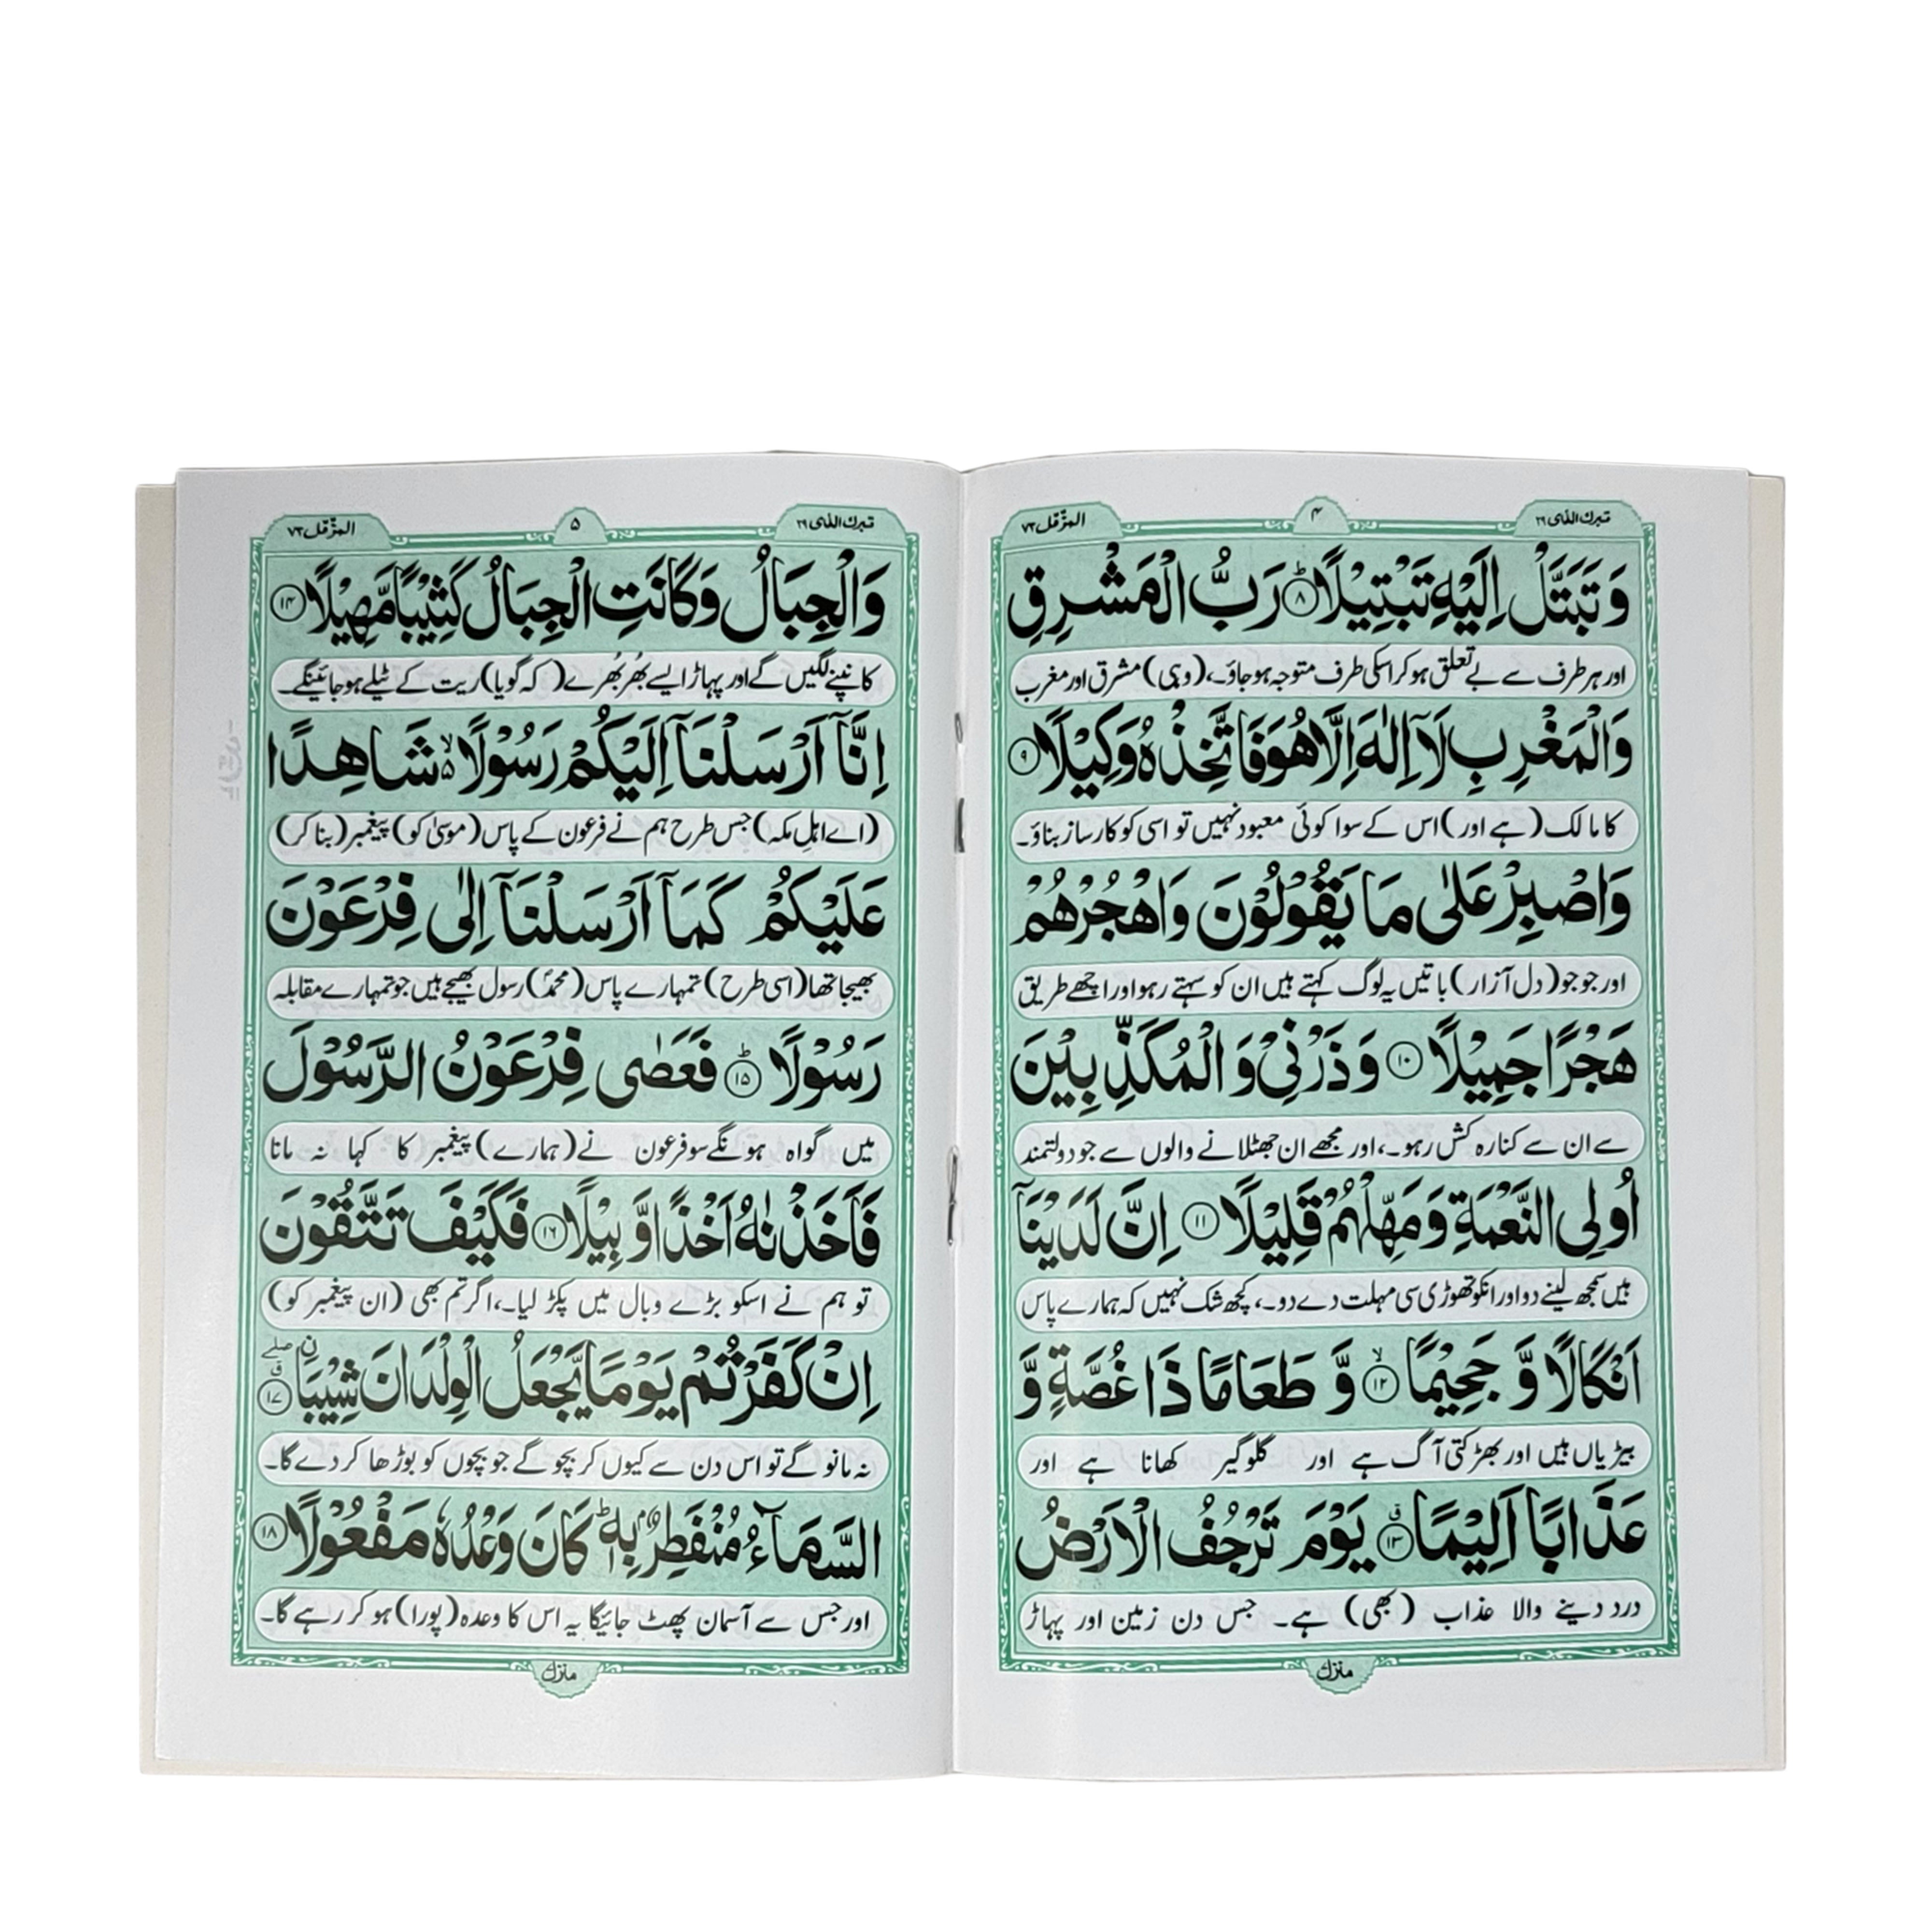 تبرك الذى ٢٩
۴
المزّمّل ٧٣
وَتَبَتَّلْ اِلَيْهِ تَبْتِيْلًا ؕ ﴿۸﴾ رَبُّ الْمَشْرِقِ
اور ہر طرف سے بے تعلق ہو کر اسکی طرف متوجہ ہو جاؤ۔، (وہی) مشرق اور مغرب
وَالْمَغْرِبِ لَاۤ اِلٰهَ اِلَّا هُوَ فَاتَّخِذْهُ وَكِيْلًا ﴿۹﴾
کا مالک (ہے اور) اس کے سوا کوئی معبود نہیں تو اسی کو کارساز بناؤ۔
وَاصْبِرْ عَلٰى مَا يَقُوْلُوْنَ وَاهْجُرْهُمْ
اور جو جو (دل آزار) باتیں یہ لوگ کہتے ہیں ان کو سہتے رہو اور اچھے طریق
هَجْرًا جَمِيْلًا ﴿۱۰﴾ وَذَرْنِيْ وَالْمُكَذِّبِيْنَ
سے ان سے کنارہ کش رہو۔، اور مجھے ان جھٹلانے والوں سے جو دولتمند
اُولِى النَّعْمَةِ وَمَهِّلْهُمْ قَلِيْلًا ﴿۱۱﴾ اِنَّ لَدَيْنَاۤ
ہیں سمجھ لینے دو اور انکو تھوڑی سی مہلت دے دو۔، کچھ شک نہیں کہ ہمارے پاس
اَنْكَالًا وَّ جَحِيْمًا ۙ ﴿۱۲﴾ وَّ طَعَامًا ذَا غُصَّةٍ وَّ
بیڑیاں ہیں اور بھڑکتی آگ ہے اور گلوگیر کھانا ہے اور
عَذَابًا اَلِيْمًا ق ﴿۱۳﴾ يَوْمَ تَرْجُفُ الْاَرْضُ
درد دینے والا عذاب (بھی) ہے۔ جس دن زمین اور پہاڑ
منزل
تبرك الذى ٢٩
۵
المزّمّل ٧٣
وَالْجِبَالُ وَكَانَتِ الْجِبَالُ كَثِيْبًا مَّهِيْلًا ﴿۱۴﴾
کانپنے لگیں گے اور پہاڑ ایسے بھُر بھُرے (کہ گویا) ریت کے ٹیلے ہو جائینگے۔
اِنَّاۤ اَرْسَلْنَاۤ اِلَيْكُمْ رَسُوْلًا ۙ۬ شَاهِدًا
(اے اہل مکہ) جس طرح ہم نے فرعون کے پاس (موسیٰ کو) پیغمبر (بنا کر)
عَلَيْكُمْ كَمَاۤ اَرْسَلْنَاۤ اِلٰى فِرْعَوْنَ
بھیجا تھا (اسی طرح) تمہارے پاس (محمدؐ) رسول بھیجے ہیں جو تمہارے مقابلہ
رَسُوْلًا ؕ ﴿۱۵﴾ فَعَصٰى فِرْعَوْنُ الرَّسُوْلَ
میں گواہ ہونگے سو فرعون نے (ہمارے) پیغمبر کا کہا نہ مانا
فَاَخَذْنٰهُ اَخْذًا وَّبِيْلًا ﴿۱۶﴾ فَكَيْفَ تَتَّقُوْنَ
تو ہم نے اسکو بڑے وبال میں پکڑ لیا۔، اگر تم بھی (ان پیغمبر کو)
اِنْ كَفَرْتُمْ يَوْمًا يَّجْعَلُ الْوِلْدَانَ شِيْبَا ۨ ق صلے ﴿۱۷﴾
نہ مانو گے تو اس دن سے کیوں کر بچو گے جو بچوں کو بوڑھا کر دے گا۔
السَّمَآءُ مُنْفَطِرٌۢ بِهٖ ؕ كَانَ وَعْدُهٗ مَفْعُوْلًا ﴿۱۸﴾
اور جس سے آسمان پھٹ جائیگا یہ اس کا وعدہ (پورا) ہو کر رہے گا۔
منزل